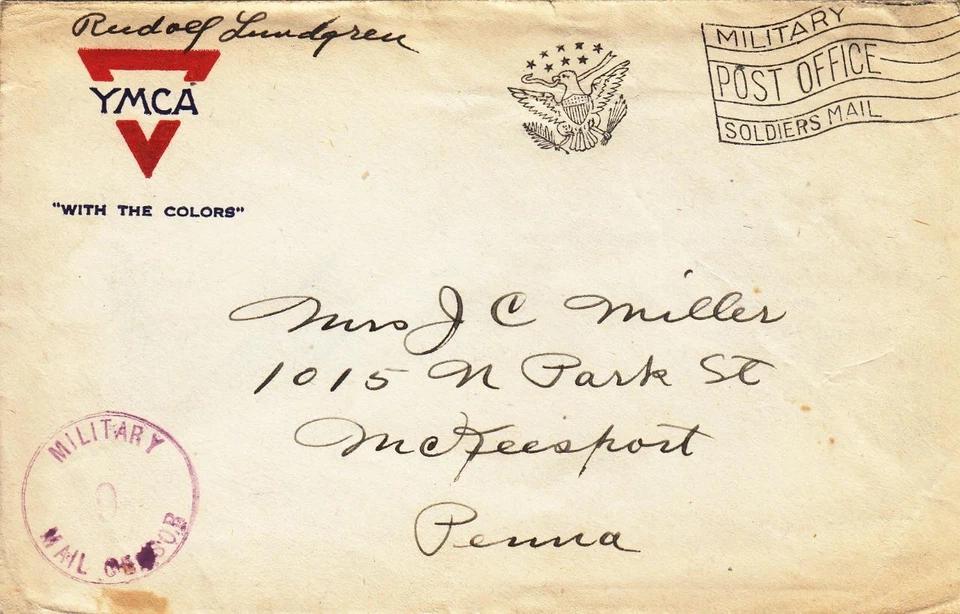 Rudolf Lundgren
YMCA
"WITH THE COLORS"
MILITARY
POST OFFICE
SOLDIERS MAIL
Mrs J C Miller
1015 N Park St
McKeesport
Penna
MILITARY
0
MAIL CENSOR